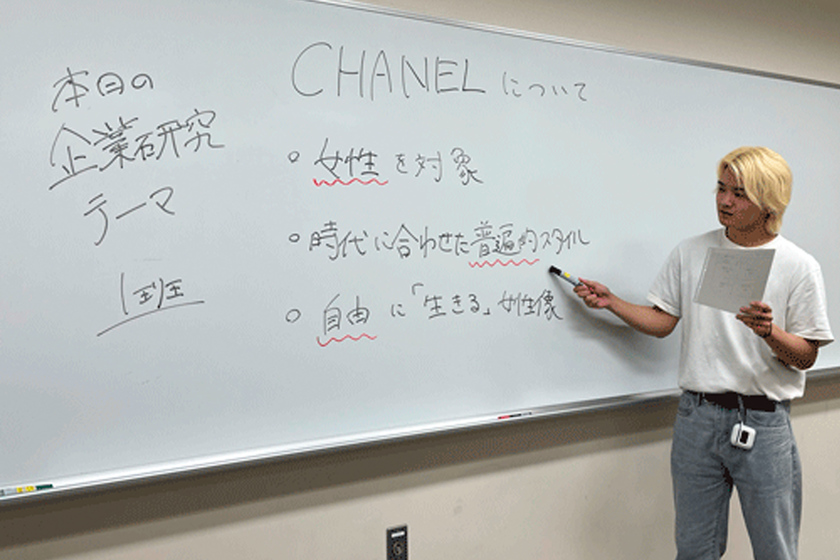 本日の
企業研究
テーマ
1班
CHANEL について
○ 女性を対象
○ 時代に合わせた普遍的スタイル
○ 自由に「生きる」女性像